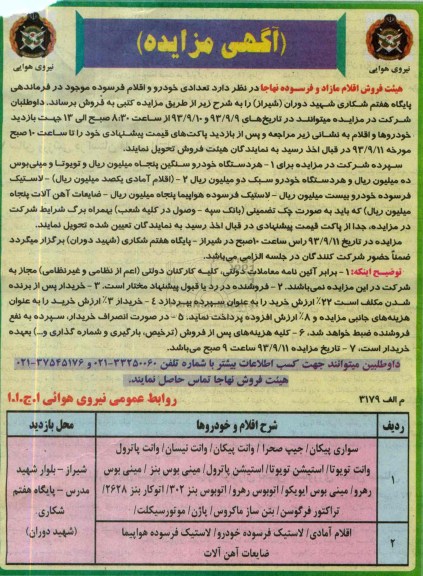 (آگهی مزایده)
نیروی هوایی
نیروی هوایی
هیئت فروش اقلام مازاد و فرسوده نهاجا در نظر دارد تعدادی خودرو و اقلام فرسوده موجود در فرماندهی
پایگاه هفتم شکاری شهید دوران (شیراز) را به شرح زیر از طریق مزایده کتبی به فروش برساند. داوطلبان
شرکت در مزایده میتوانند در تاریخ‌های ۹۳/۹/۹ و ۹۳/۹/۱۰ از ساعت ۸:۳۰ صبح الی ۱۳ جهت بازدید
خودروها و اقلام به نشانی زیر مراجعه و پس از بازدید پاکت‌های قیمت پیشنهادی خود را تا ساعت ۱۰ صبح
مورخه ۹۳/۹/۱۱ در قبال اخذ رسید به نمایندگان هیئت فروش تحویل نمایند.
سپرده شرکت در مزایده برای ۱ - هردستگاه خودرو سنگین پنجاه میلیون ریال و تویوتا و مینی‌بوس
ده میلیون ریال و هردستگاه خودرو سبک دو میلیون ریال ۲ - (اقلام آمادی یکصد میلیون ریال) - لاستیک
فرسوده خودرو بیست میلیون ریال - لاستیک فرسوده هواپیما پنجاه میلیون ریال - ضایعات آهن آلات پنجاه
میلیون ریال) که باید به صورت چک تضمینی (بانک سپه - وصول در کلیه شعب) بهمراه برگ شرایط شرکت
در مزایده، جدا از پاکت قیمت پیشنهادی در قبال اخذ رسید به نمایندگان تعیین شده تحویل نمایند.
مزایده در تاریخ ۹۳/۹/۱۱ راس ساعت ۱۰ صبح در شیراز - پایگاه هفتم شکاری (شهید دوران) برگزار میگردد
ضمناً حضور شرکت کنندگان در جلسه الزامی می‌باشد.
توضیح اینکه: ۱ - برابر آئین نامه معاملات دولتی، کلیه کارکنان دولتی (اعم از نظامی و غیرنظامی) مجاز به
شرکت در این مزایده نمی‌باشند. ۲ - فروشنده در رد یا قبول پیشنهاد مختار است. ۳ - خریدار پس از برنده
شدن مکلف است ۲۲٪ ارزش خرید را به عنوان سپرده بپردازد ٤ - خریدار ۳٪ ارزش خرید را به عنوان
هزینه‌های جانبی مزایده و ۸٪ ارزش افزوده پرداخت نماید. ۵ - در صورت انصراف خریدار، سپرده به نفع
فروشنده ضبط خواهد شد. ۶ - کلیه هزینه‌های پس از فروش (ترخیص، بارگیری و شماره گذاری و...) بعهده
خریدار است. ۷ - تاریخ مزایده ۹۳/۹/۱۱ ساعت ۹ صبح می‌باشد.
داوطلبین میتوانند جهت کسب اطلاعات بیشتر با شماره تلفن ۳۳۲۵۰۰۶۰-۰۲۱ و ۳۷۵۴۵۱۷۶-۰۲۱
هیئت فروش نهاجا تماس حاصل نمایند.
م الف ۳۱۷۹
روابط عمومی نیروی هوائی ا.ج.ا.ا
ردیف
شرح اقلام و خودروها
محل بازدید
۱
سواری پیکان/ جیپ صحرا / وانت پیکان/ وانت نیسان/ وانت پاترول
وانت تویوتا/ استیشن تویوتا/ استیشن پاترول/ مینی بوس بنز / مینی بوس
رهرو/ مینی بوس ایویکو/ اتوبوس رهرو/ اتوبوس بنز ۳۰۲/ اتوکار بنز ۲۶۲۸/
تراکتور فرگوسن/ بتن ساز ماکروس/ پاژن/ موتورسیکلت/
شیراز - بلوار شهید
مدرس - پایگاه هفتم
شکاری
(شهید دوران)
۲
اقلام آمادی/ لاستیک فرسوده خودرو/ لاستیک فرسوده هواپیما
ضایعات آهن آلات